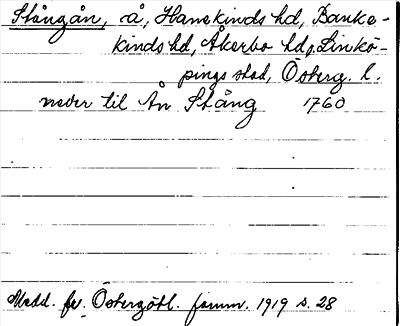 Stångån, å, Hanekinds hd, Banke-
kinds hd, Åkerbo hd, Linkö-
pings stad, Österg. l.
neder til Ån Stång 1760
Medd. fr. Östergötl. fornm. 1919 s. 28